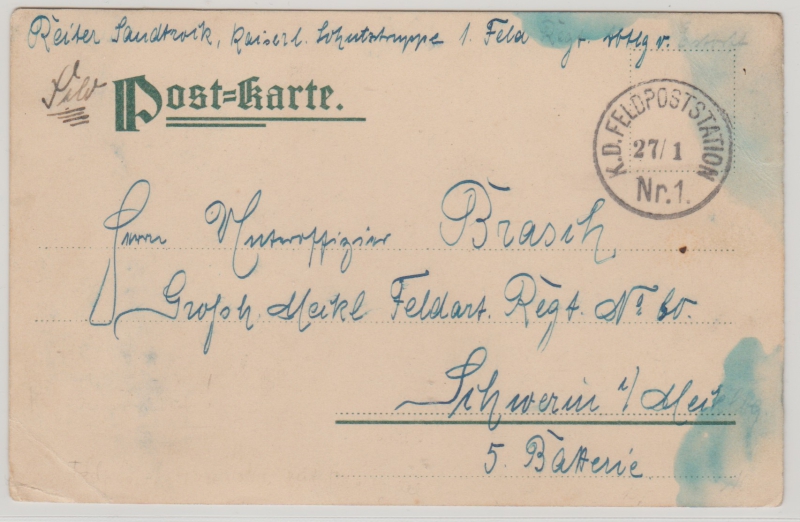 Reiter Sandtroik, Kaiserl. Schutztruppe 1. Feld Rgt.
Post-Karte.
K.D. FELDPOSTSTATION
27/1
Nr.1.
Herrn Unteroffizier Brasch
Großh. Meckl Feldart. Regt. No 60.
Schwerin i/Meck
5. Batterie